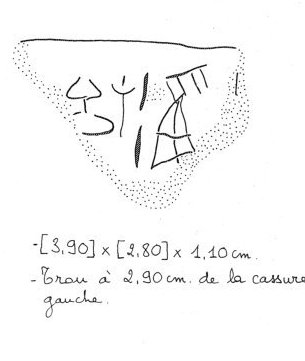 -[3,90] x [2,80] x 1,10 cm.
- Trou à 2,90 cm. de la cassure
gauche.